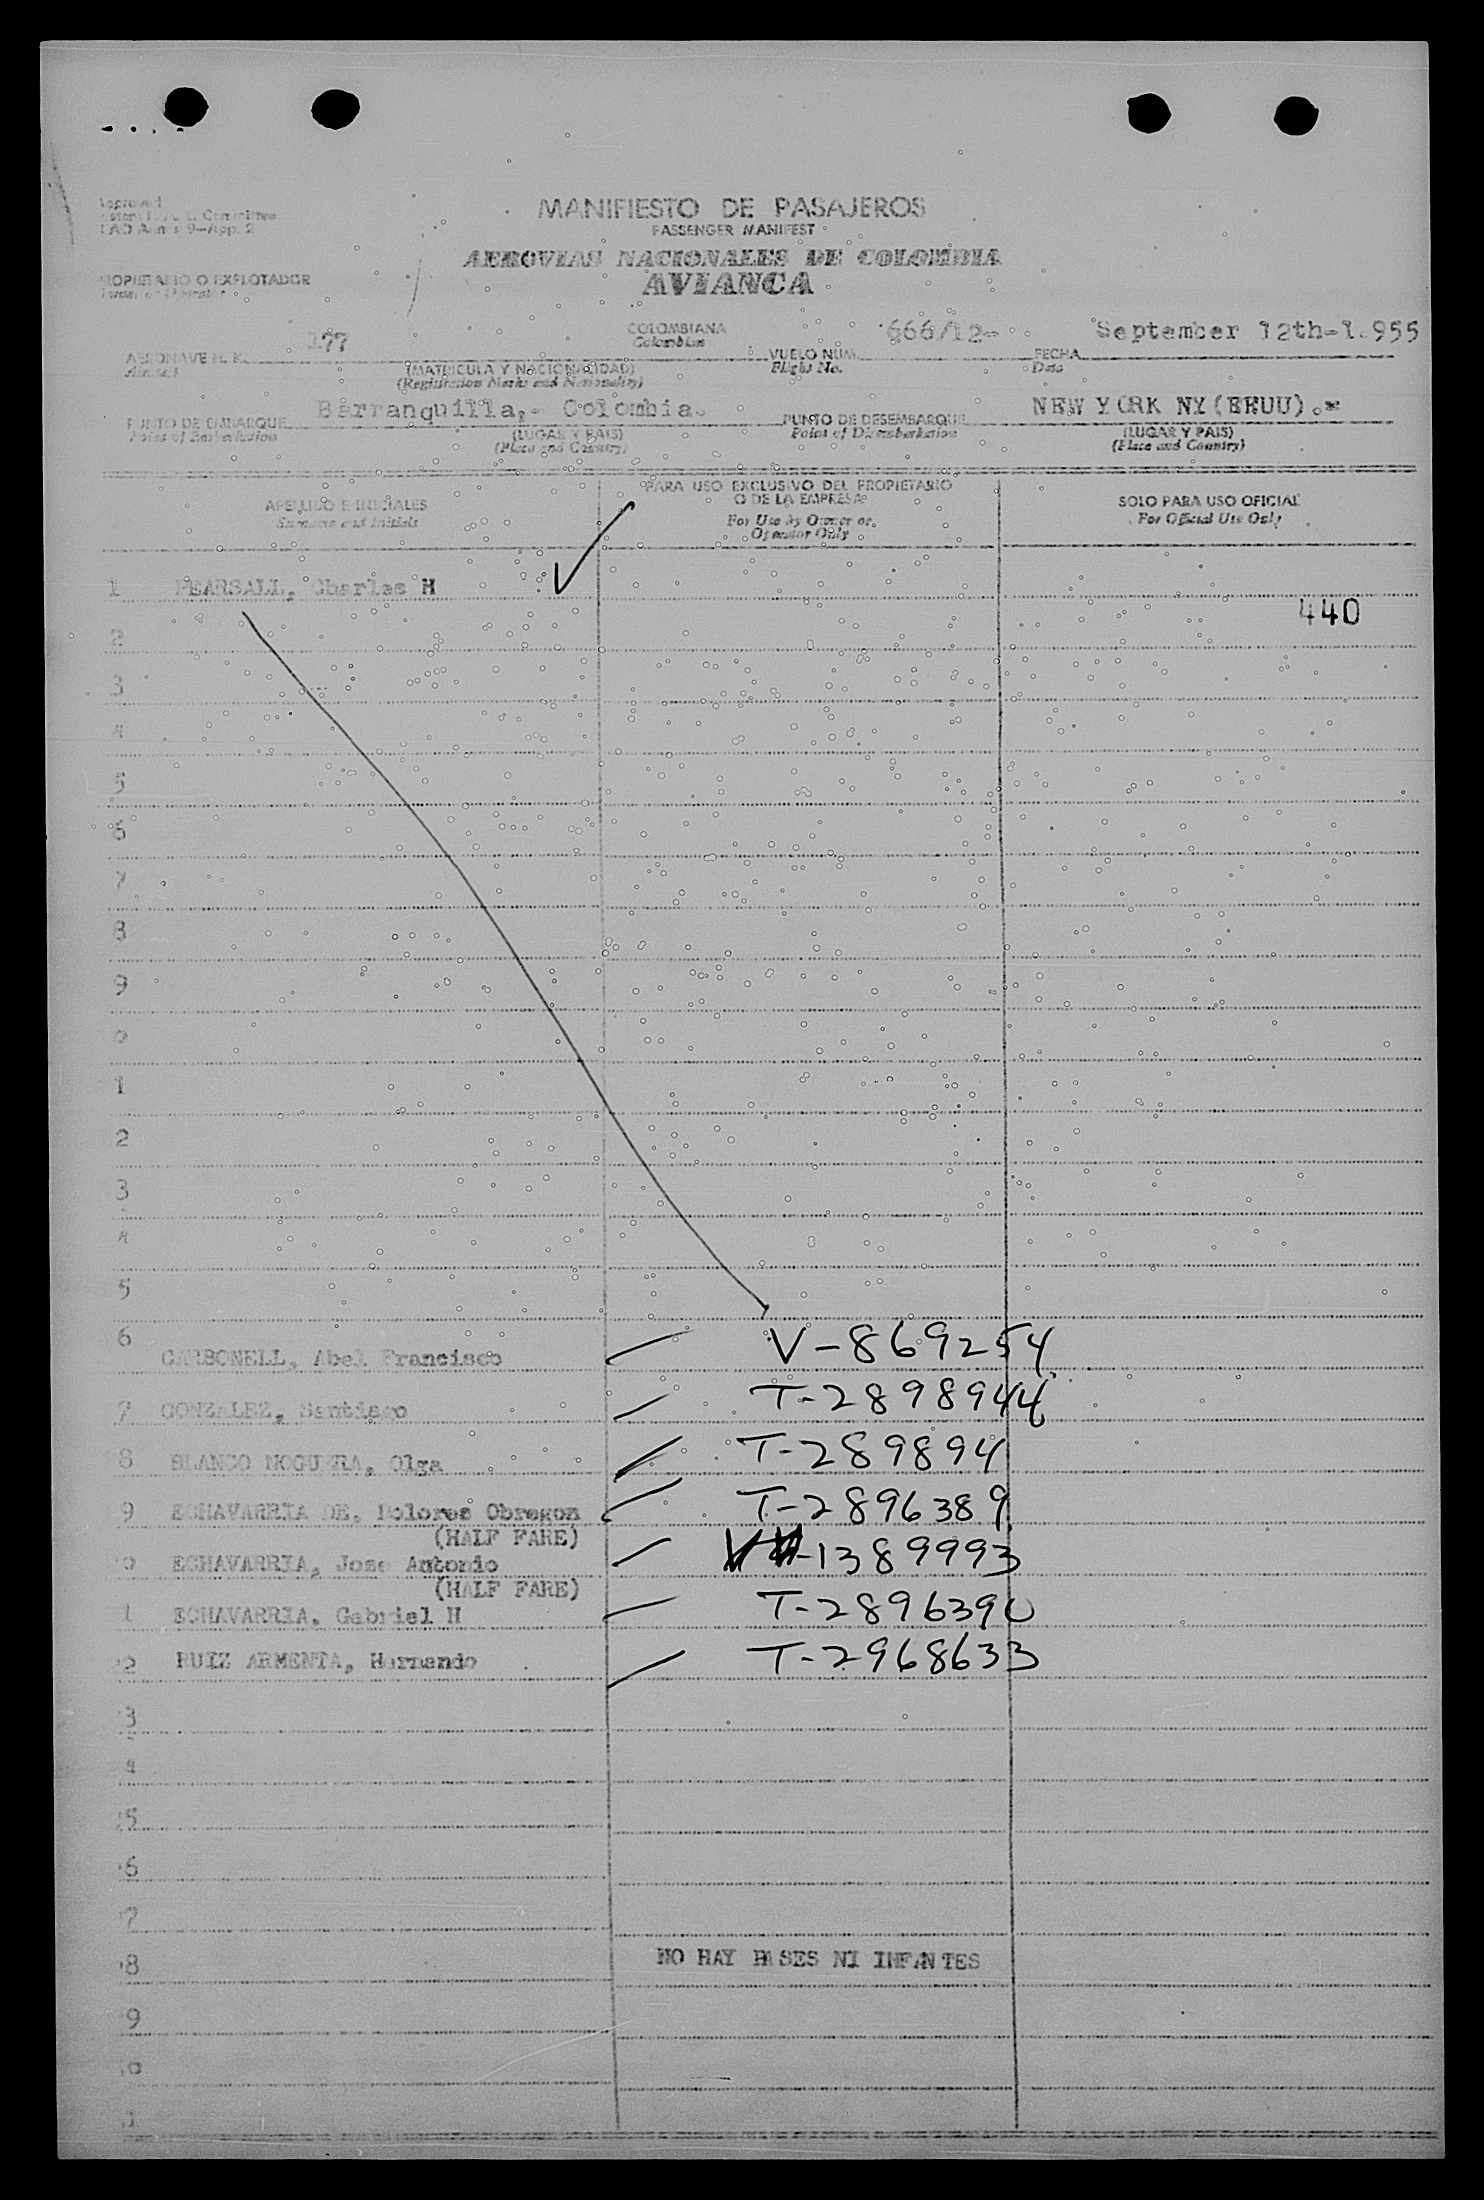 Approved
MANIFIESTO DE PASAJEROS
PASSENGER MANIFEST
AEROVIAS NACIONALES DE COLOMBIA
AVIANCA
PROPIETARIO O EXPLOTADOR
Owner or Operator
AERONAVE H. K. 177
Aircraft
COLOMBIANA
Colombian
(MATRICULA Y NACIONALIDAD)
(Registration Marks and Nationality)
VUELO NUM. 666/12-
Flight No.
FECHA September 12th-1.955
Date
PUNTO DE EMBARQUE Barranquilla,- Colombia.
Point of Embarkation
(LUGAR Y PAIS)
(Place and Country)
PUNTO DE DESEMBARQUE NEW YORK NY(EEUU).-
Point of Disembarkation
(LUGAR Y PAIS)
(Place and Country)
APELLIDO E INICIALES
Surname and Initials
PARA USO EXCLUSIVO DEL PROPIETARIO
O DE LA EMPRESA
For Use by Owner or
Operator Only
SOLO PARA USO OFICIAL
For Official Use Only
1 PEARSALL, Charles H
440
2
3
4
5
6
7
8
9
0
1
2
3
4
5
6 CARBONELL, Abel Francisco V-869254
7 GONZALEZ, Santiago T-2898944
8 BLANCO NOGUERA, Olga T-289894
9 ECHAVARRIA DE, Dolores Obregon T-2896389
(HALF FARE)
0 ECHAVARRIA, Jose Antonio -1389993
(HALF FARE)
1 ECHAVARRIA, Gabriel H T-2896390
2 RUIZ ARMENTA, Hernando T-2968633
3
4
5
6
7
8 NO HAY PASES NI INFANTES
9
0
1